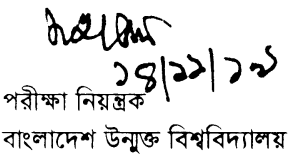 ১৪/১১/১৯
পরীক্ষা নিয়ন্ত্রক
বাংলাদেশ উন্মুক্ত বিশ্ববিদ্যালয়